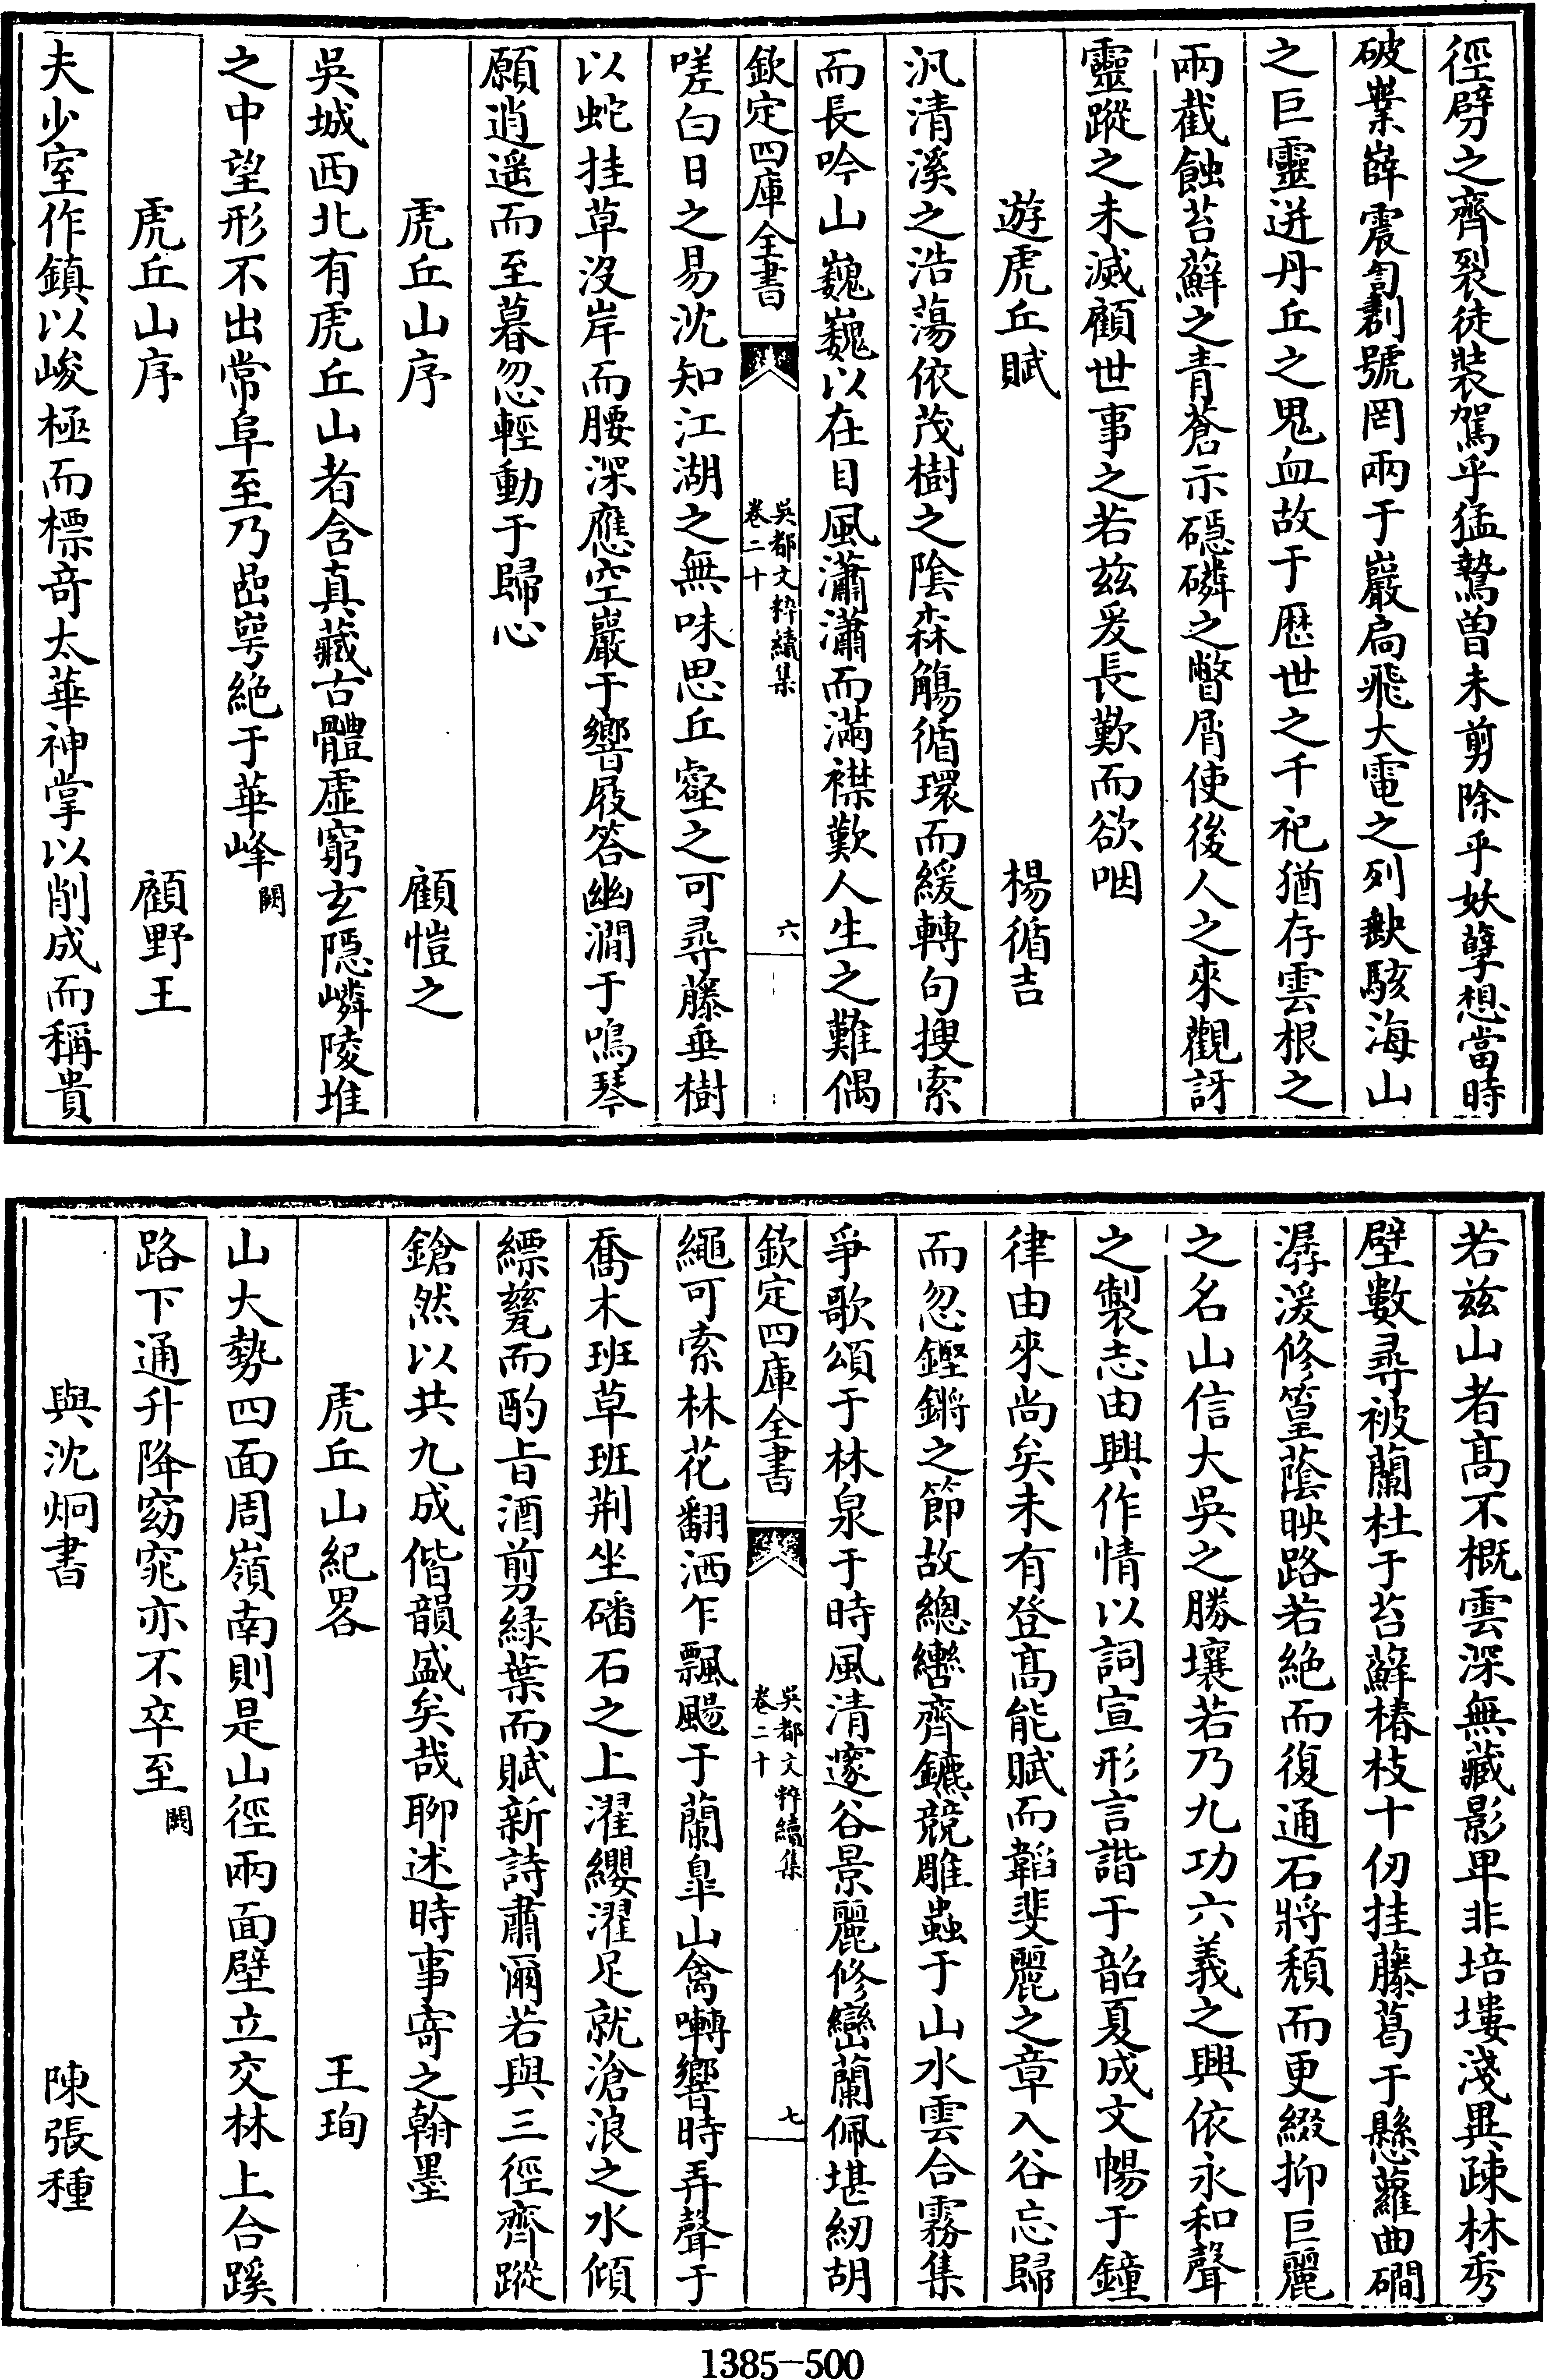 徑劈之齊裂徒裝駕乎猛驚曽未剪除乎妖孽想當時
破業嶭震訇劃號罔兩于巖扃飛大電之列缺駭海山
之巨靈迸丹丘之鬼血故于歷世之千祀猶存雲根之
兩截蝕苔蘚之青蒼示磤磷之瞥屑使後人之來觀訝
靈蹤之未滅顧世事之若兹爰長歎而欲咽
遊虎丘賦 楊循吉
汎清溪之浩蕩依茂樹之陰森觴循環而緩轉句搜索
而長吟山巍巍以在目風瀟瀟而滿襟歎人生之難偶
欽定四庫全書 吳都文粹續集 卷二十 六
嗟白日之易沈知江湖之無味思丘壑之可尋藤垂樹
以蛇挂草沒岸而腰深應空巖于響屐答幽澗于鳴琴
願逍遥而至暮忽輕動于歸心
虎丘山序 顧愷之
吳城西北有虎丘山者含真藏古體虛窮玄隱嶙陵堆
之中望形不出常阜至乃嵒崿絶于華峰闕
虎丘山序 顧野王
夫少室作鎮以峻極而標竒太華神掌以削成而稱貴
若兹山者髙不概雲深無藏影卑非培塿淺異疎林秀
壁數尋被蘭杜于苔蘚椿枝十仞挂藤葛于懸蘿曲磵
潺湲修篁蔭映路若絶而復通石將頹而更綴抑巨麗
之名山信大吳之勝壤若乃九功六義之興依永和聲
之製志由興作情以詞宣形言諧于韶夏成文暢于鐘
律由來尚矣未有登髙能賦而韜斐麗之章入谷忘歸
而忽鏗鏘之節故總轡齊鑣競雕蟲于山水雲合霧集
爭歌頌于林泉于時風清邃谷景麗修巒蘭佩堪紉胡
欽定四庫全書 吳都文粹續集 卷二十 七
繩可索林花翻洒乍飄颺于蘭皐山禽囀響時弄聲于
喬木班草班荆坐磻石之上濯纓濯足就滄浪之水傾
縹甆而酌旨酒剪緑葉而賦新詩肅爾若與三徑齊蹤
鎗然以共九成偕韻盛矣哉聊述時事寄之翰墨
虎丘山紀畧 王珣
山大勢四面周嶺南則是山徑兩面壁立交林上合蹊
路下通升降窈窕亦不卒至闕
與沈炯書 陳張種
1385-500